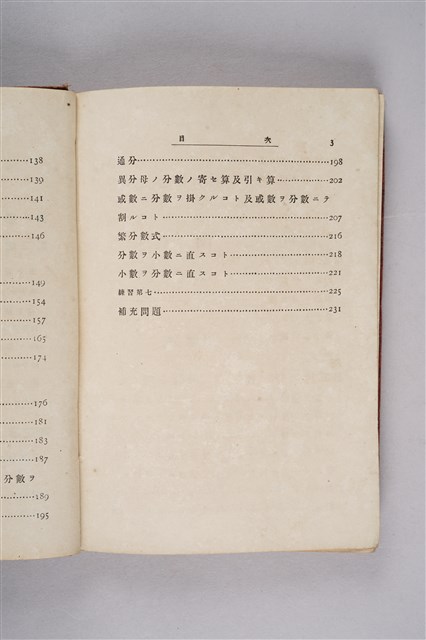 138
139
141
143
146
149
154
157
165
174
176
181
183
187
分數ヲ
189
195
目次 3
通分 198
異分母ノ分數ノ寄セ算及引キ算 202
或數ニ分數ヲ掛クルコト及或數ヲ分數ニテ
割ルコト 207
繁分數式 216
分數ヲ小數ニ直スコト 218
小數ヲ分數ニ直スコト 221
練習第七 225
補充問題 231